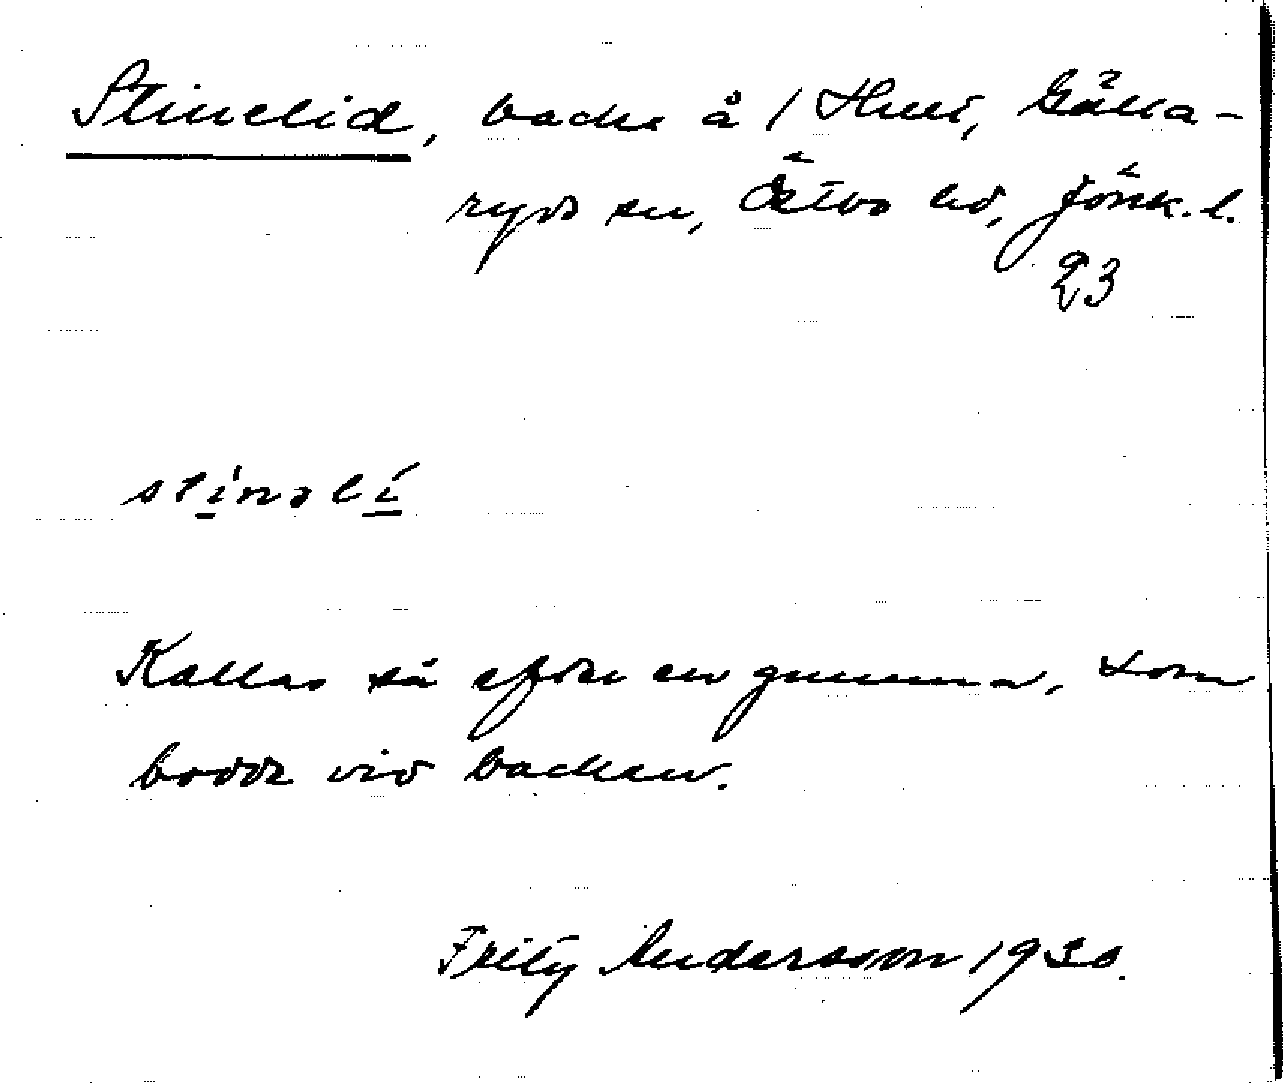 Stinelid, backe å / Hult, Gälla-
ryds sn, Östbo hd, Jönk. l.
23
stinəli
Kallas så efter en gumma, som
bodde vid backen.
Fritz Andersson 1930.